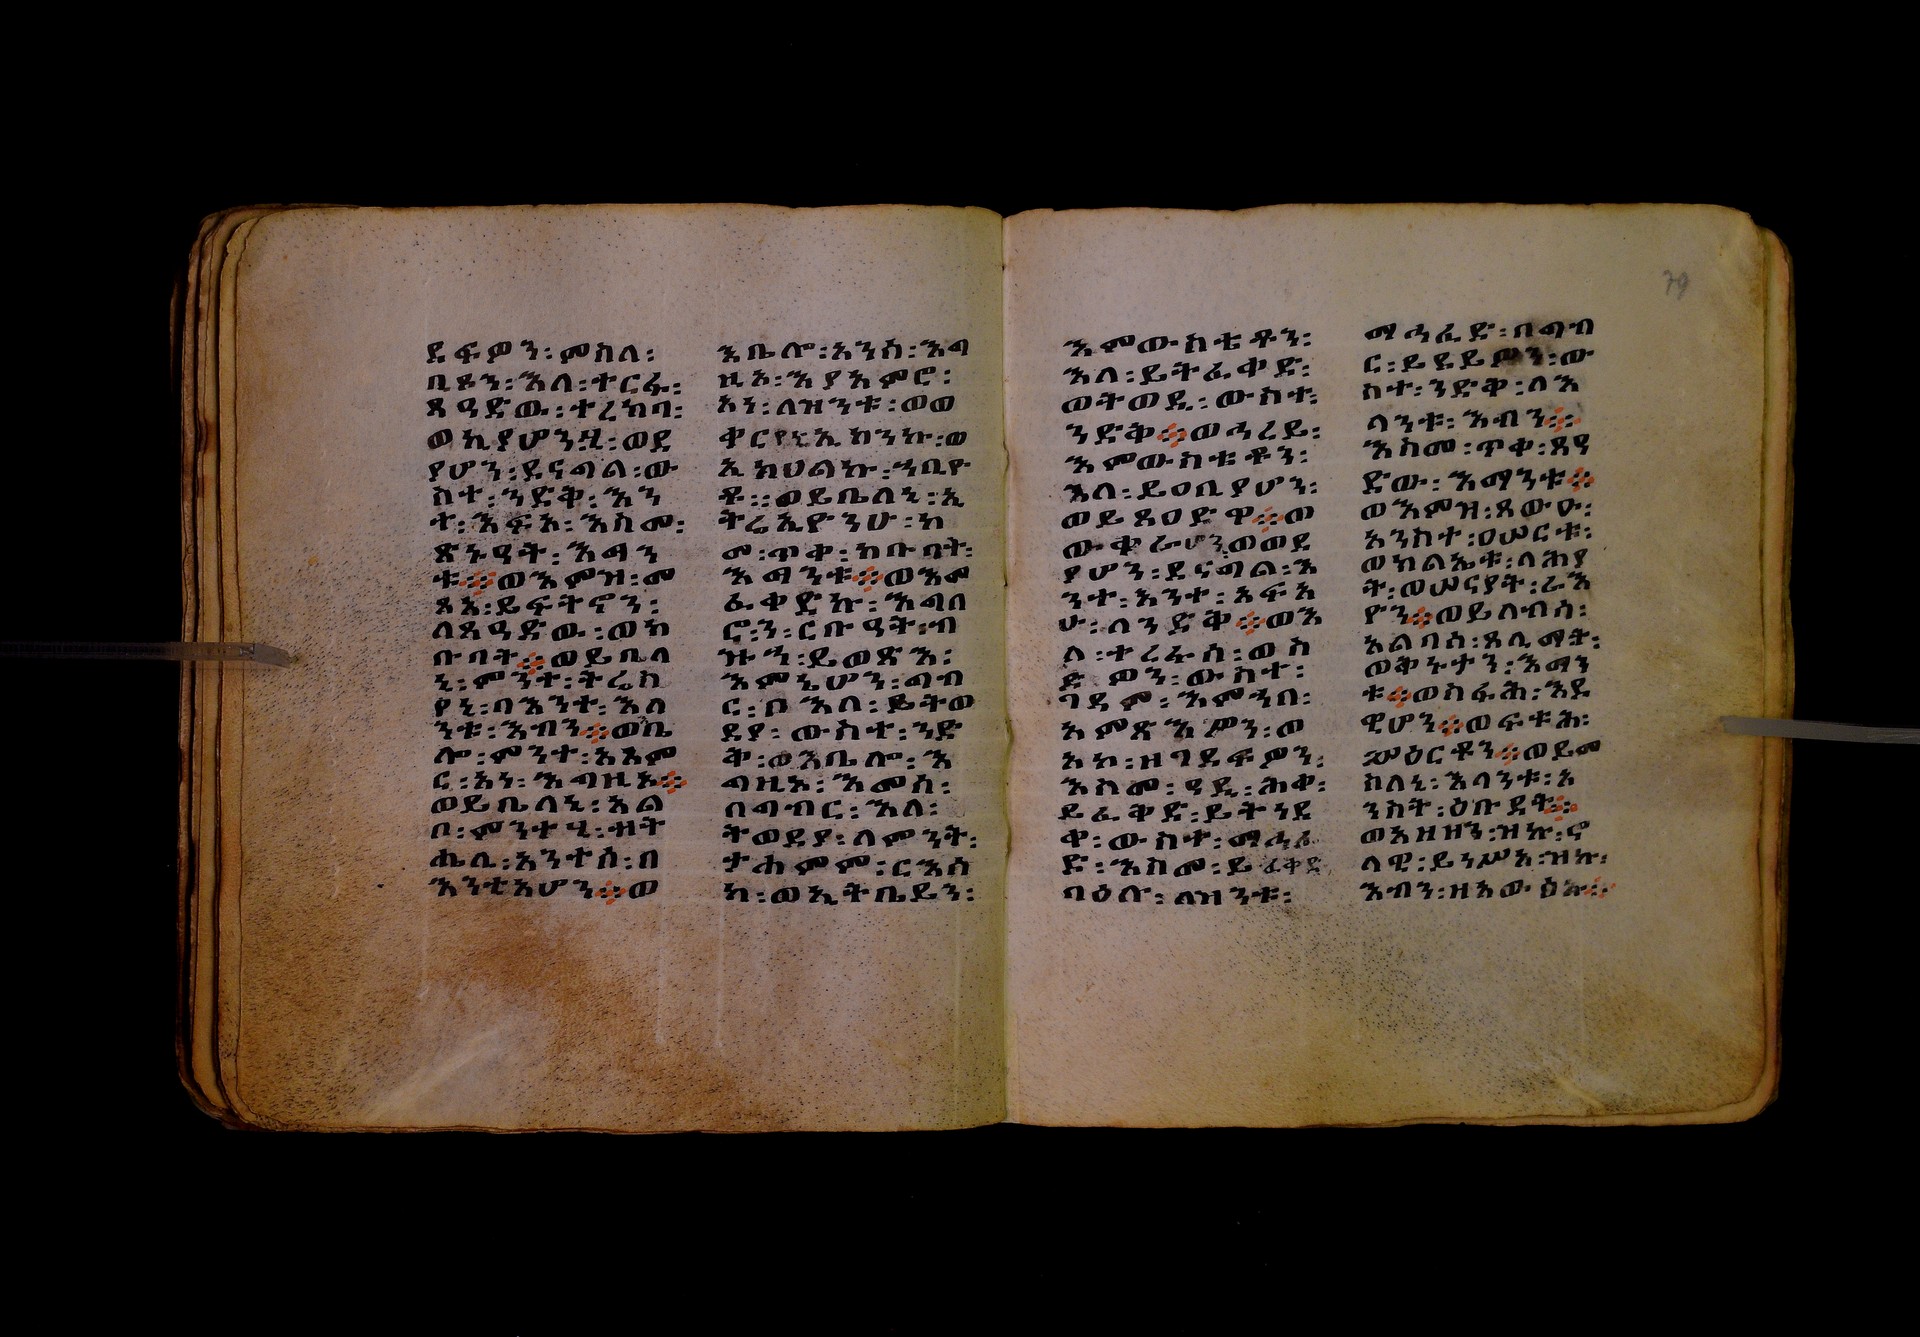 ደፍዎን፡ምስለ፡
ቢጾን፡እለ፡ተርፉ፡
ጸዓድው፡ተረክባ፡
ወኪያሆንሂ፡ወደ
ያሆን፡ደናግል፡ው
ስተ፡ንድቅ፡እን
ተ፡አፍአ፡እስመ፡
ጽኑዓት፡እማን
ቱ፨ወእምዝ፡መ
ጻእ፡ይፍትኖን፡
ለጸዓድው፡ወከ
ቡባት፨ወይቤለ
ኒ፡ምንተ፡ትሬኪ
የኒ፡በእንተ፡እለ
ንቱ፡እብን፨ወቤ
ሎ፡ምንተ፡አአም
ር፡አነ፡እግዚአ፨
ወይቤለኒ፡አል
ቦ፡ምንተ፡ዝት
ሔሊ፡አንተሰ፡በ
እንቲአሆን፨ወ
እቤሎ፡አንሰ፡እግ
ዚኦ፡ኢያአምሮ፡
አነ፡ለዝንቱ፡ወወ
ቀርየኒ፡ኢኮንኩ፡ወ
ኢክህልኩ፡ሐቢዮ
ቶ፡፡ወይቤለኒ፡ኢ
ትሬኢዮንሁ፡ከ
መ፡ጥቀ፡ክቡባት፡
እማንቱ፨ወእመ
ፈቀድኩ፡እግበ
ሮ፡ን፡ርቡዓት፡ብ
ዙኅ፡ይወጽእ፡
እምኔሆን፡ግብ
ር፡ቦ፡እለ፡ይትወ
ደያ፡ውስተ፡ንድ
ቅ፡ወእቤሎ፡እ
ግዚአ፡እመሰ፡
በግብር፡እለ፡
ትወደያ፡ለምንት፡
ታሐምም፡ርእሰ
ከ፡ወኢትቤይን፡
እምውስቴቶን፡
እለ፡ይትፈቀድ፡
ወትወዲ፡ውስተ፡
ንድቅ፨ወሐረይ፡
እምውስቴቶን፡
እለ፡ይዐቢያሆን፡
ወይጸዐድዋ፨ወ
ውቁራሆን፡ወወደ
ያሆን፡ደናግል፡እ
ንተ፡እንተ፡አፍአ
ሁ፡ለንድቅ፨ወእ
ለ፡ተረፉሰ፡ወስ
ድዎን፡ውስተ፡
ገዳም፡እምኀበ፡
አምጽእዎን፡ወ
አኮ፡ዝገደፍዎን፡
እስመ፡ዓዲ፡ሕቀ፡
ይፈቅድ፡ይትነደ
ቀ፡ውስተ፡ማኅፈ
ድ፡እስመ፡ይፈቀድ
በዕሉ፡ለዝንቱ፡
ማኅፈድ፡በግብ
ር፡ይደይዎን፡ው
ስተ፡ንድቅ፡ለእ
ላንቱ፡እብን፨
እስመ፡ጥቀ፡ጸዓ
ድው፡እማንቱ፨
ወእምዝ፡ጸውዑ፡
አንስተ፡ዐሠርቱ፡
ወክልኤቱ፡ለሕያ
ት፡ወሠናያት፡ራእ
ዮን፨ወይለብሳ፡
አልባሰ፡ጸሊማት፡
ወቅኑታን፡እማን
ቱ፨ወስፉሕ፡እደ
ዊሆን፨ወፍቱሕ፡
ሥዕርቶን፨ወይመ
ስለኒ፡እላንቱ፡አ
ንስት፡ዕቡዳት፨
ወአዘዞን፡ዝኩ፡ኖ
ላዊ፡ይንሥኣ፡ዝኩ፡
እብን፡ዘአውፅኡ፨